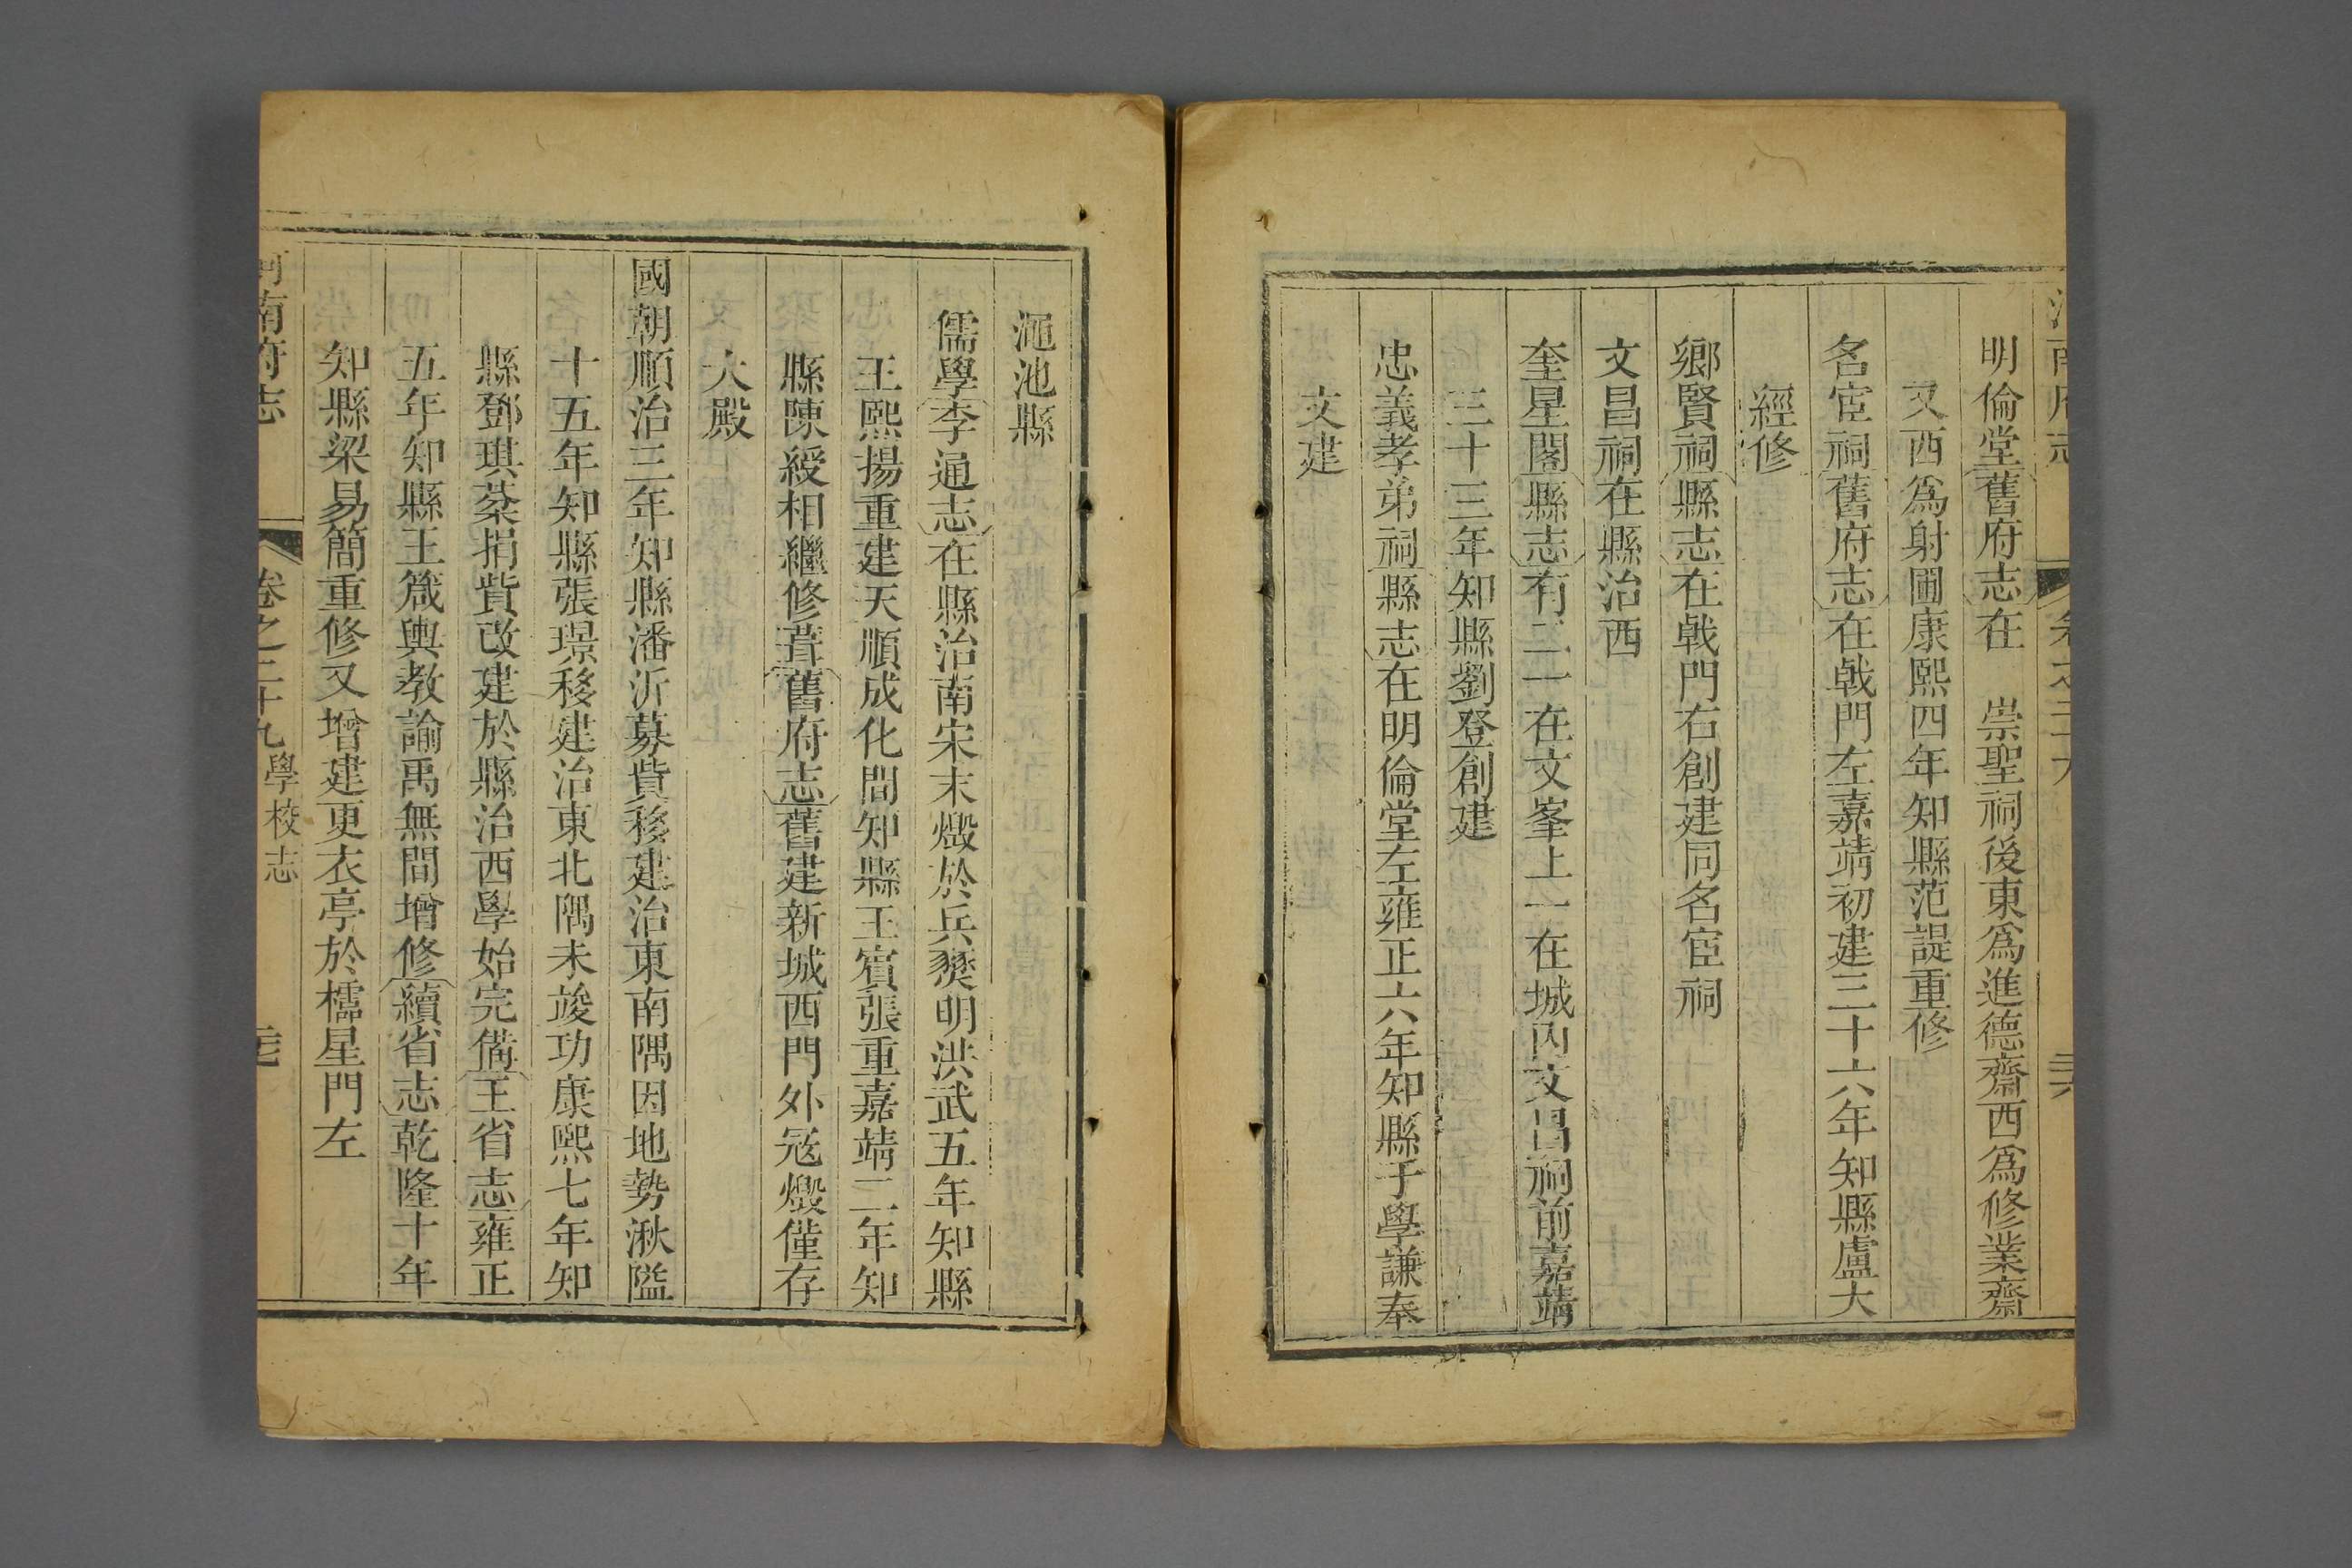 明倫堂舊府志在　崇聖祠後東爲進德齋西爲修業齋
又西爲射圃康熙四年知縣范諟重修
名宦祠舊府志在戟門左嘉靖初建三十六年知縣盧大
經修
鄉賢祠縣志在戟門右創建同名宦祠
文昌祠在縣治西
奎星閣縣志有二一在文峯上一在城內文昌祠前嘉靖
三十三年知縣劉登創建
忠義孝弟祠縣志在明倫堂左雍正六年知縣于學謙奉
文建
澠池縣
儒學李通志在縣治南宋末燬於兵燹明洪武五年知縣
王熙揚重建天順成化間知縣王賓張重嘉靖二年知
縣陳綬相繼修葺舊府志舊建新城西門外冦燬僅存
大殿
國朝順治三年知縣潘沂募貲移建治東南隅因地勢湫隘
十五年知縣張璟移建治東北隅未竣功康熙七年知
縣鄧琪棻捐貲改建於縣治西學始完備王省志雍正
五年知縣王箴輿教諭禹無間增修續省志乾隆十年
知縣梁易簡重修又增建更衣亭於櫺星門左
河南府志　卷之二十九學校志